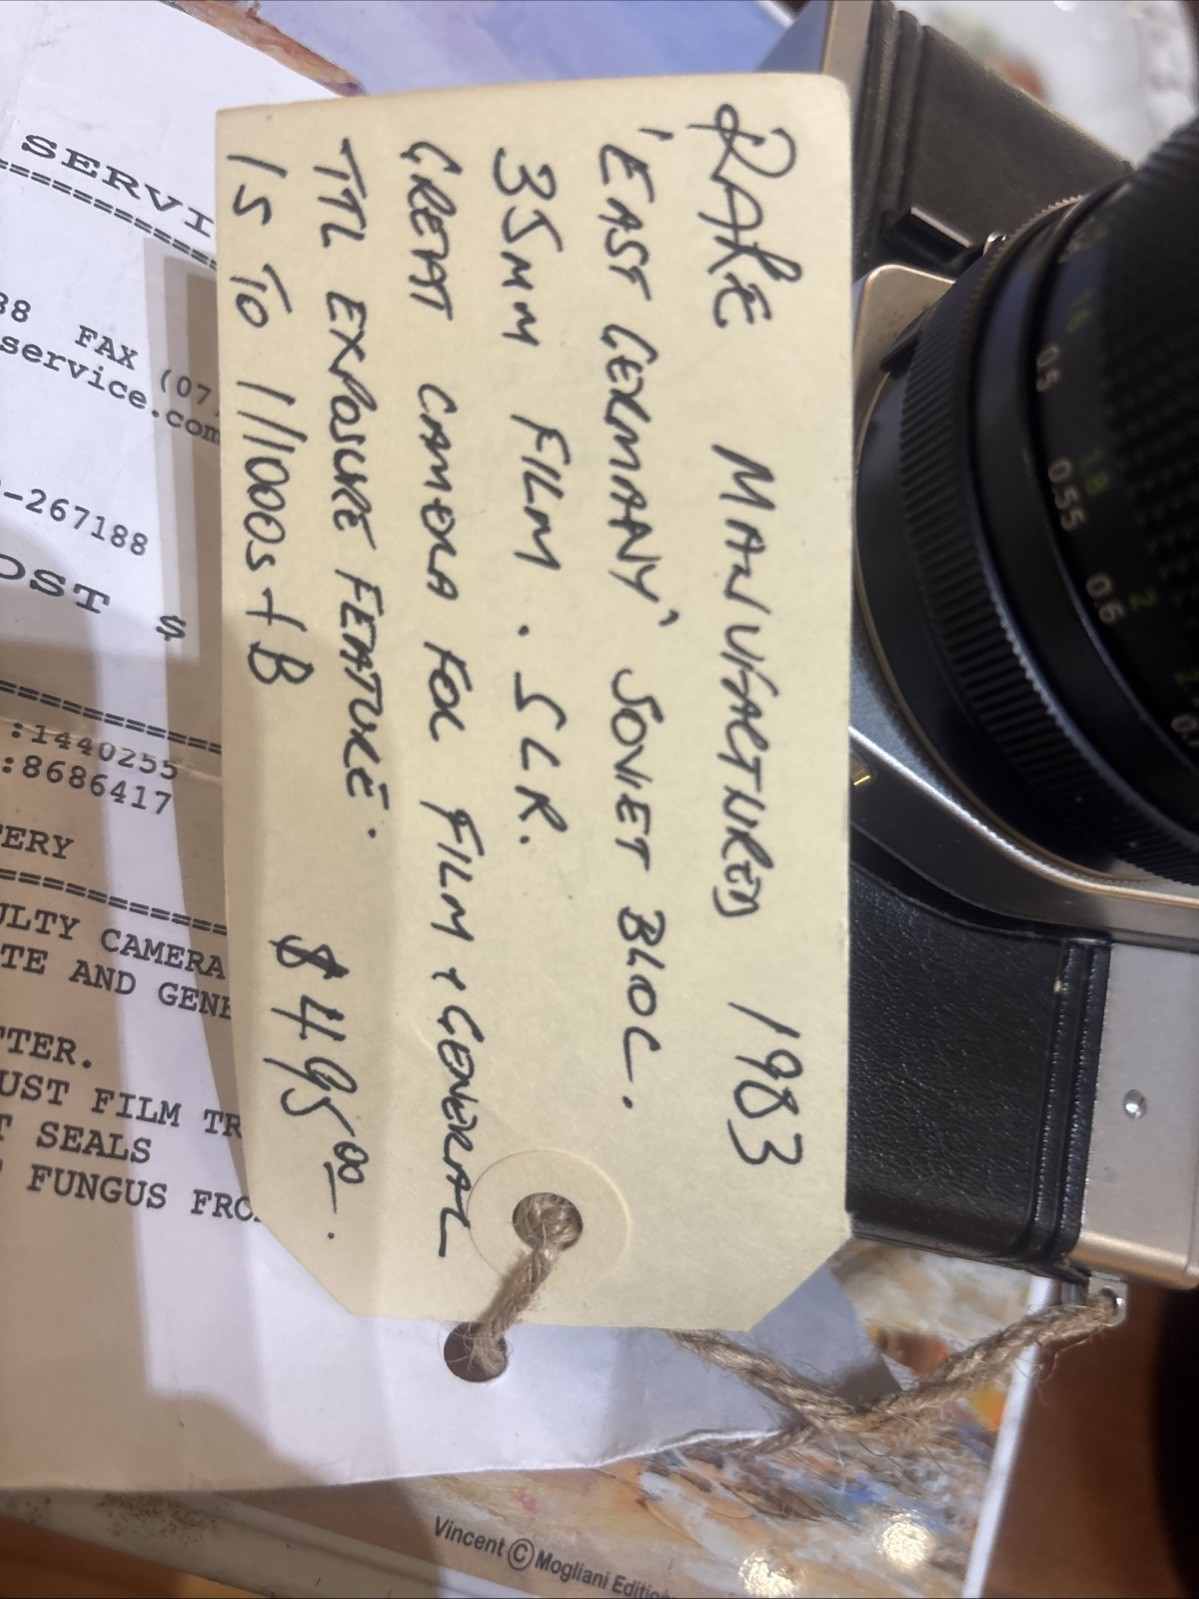 RARE MANUFACTURED 1983
'EAST GERMANY' SOVIET BLOC.
35MM FILM. SLR.
GREAT CAMERA FOR FILM & GENERAL
TTL EXPOSURE FEATURE.
1S TO 1/1000s + B $495.00
SERVI
========
38 FAX (07
service.com
-267188
OST $
========
:1440255
:8686417
TERY
========
ULTY CAMERA
TE AND GENE
TTER.
UST FILM TR
T SEALS
FUNGUS FRO
16
0.5
18
0.55
2
0.6
Vincent © Mogliani Editio